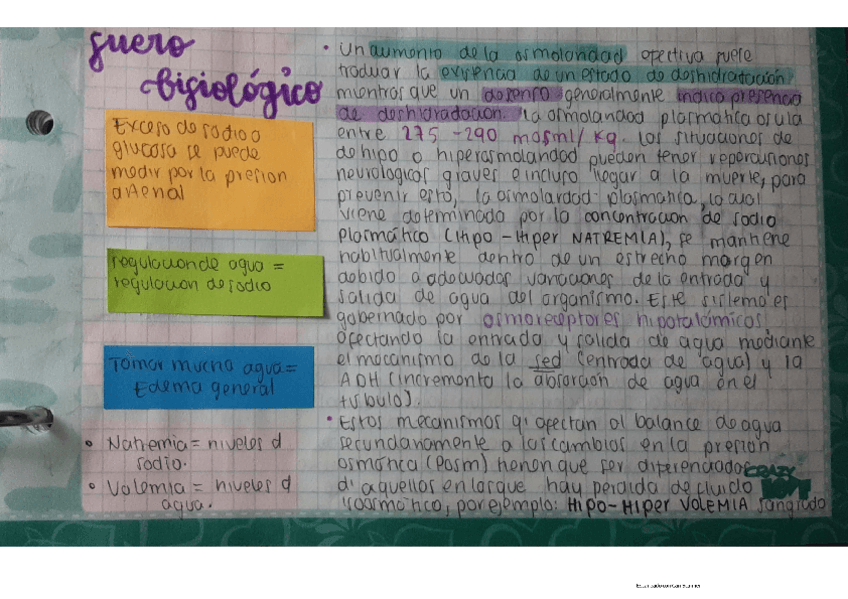 suero
fisiológico
Exceso de sodio o
glucosa se puede
medir por la presion
arterial
regulacion de agua =
regulacion de sodio
Tomar mucha agua =
Edema general
• Natremia = niveles d
sodio.
• Volemia = niveles d
agua.
• Un aumento de la osmolaridad efectiva suele
traducir la existencia de un estado de deshidratación,
mientras que un descenso generalmente indica presencia
de deshidratacion. la osmolaridad plasmatica oscila
entre 275 - 290 mosml/kg. Las situaciones de
de hipo o hiperosmolaridad pueden tener repercusiones
neurologicas graves e incluso llegar a la muerte, para
prevenir esto, la osmolaridad plasmatica, lo cual
viene determinado por la concentracion de sodio
Plasmático (Hipo-Hiper NATREMIA), se mantiene
habitualmente dentro de un estrecho margen
debido a adecuadas variaciones de la entrada y
salida de agua del organismo. Este sistema es
gobernado por osmoreceptores hipotalámicos,
afectando la entrada y salida de agua mediante
el mecanismo de la sed (entrada de agua) y la
ADH (incremento la absorcion de agua en el
tubulo).
• Estos mecanismos q' afectan al balance de agua
secundariamente a los cambios en la presion
osmótica (Posm) tienen que ser diferenciados
d' aquellos en los que hay perdida de fluido
isoosmotico, por ejemplo: HIPO-HIPER VOLEMIA sangrado
CRAZY
Escaneado con CamScanner